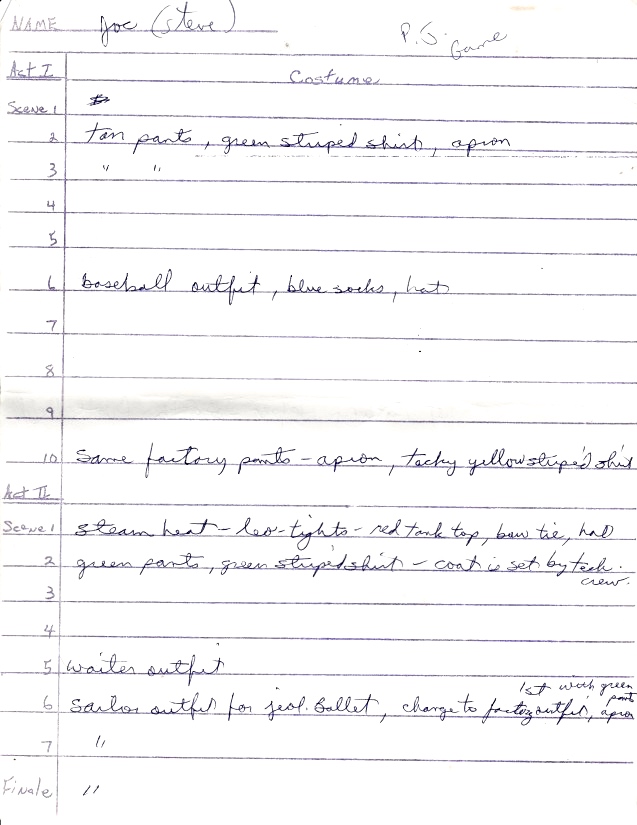 NAME Joe (Steve)
P.J. Game
Act I Costume
Scene 1
2 tan pants, green striped shirt, apron
3 " "
4
5
6 baseball outfit, blue socks, hat
7
8
9
10 Same factory pants - apron, tacky yellow striped shirt
Act II
Scene 1 steam heat - leo-tights - red tank top, bow tie, hat
2 green pants, green striped shirt - coat is set by tech.
crew.
3
4
5 waiter outfit
1st with green pants
6 Sailor outfit for jeal. ballet, change to factory outfit, apron
7 "
Finale "